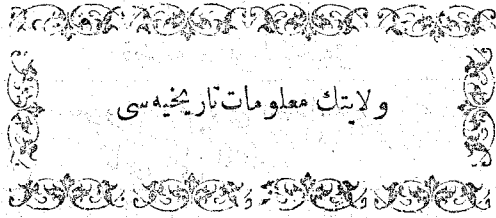 ولایتك معلومات تاریخیه سی